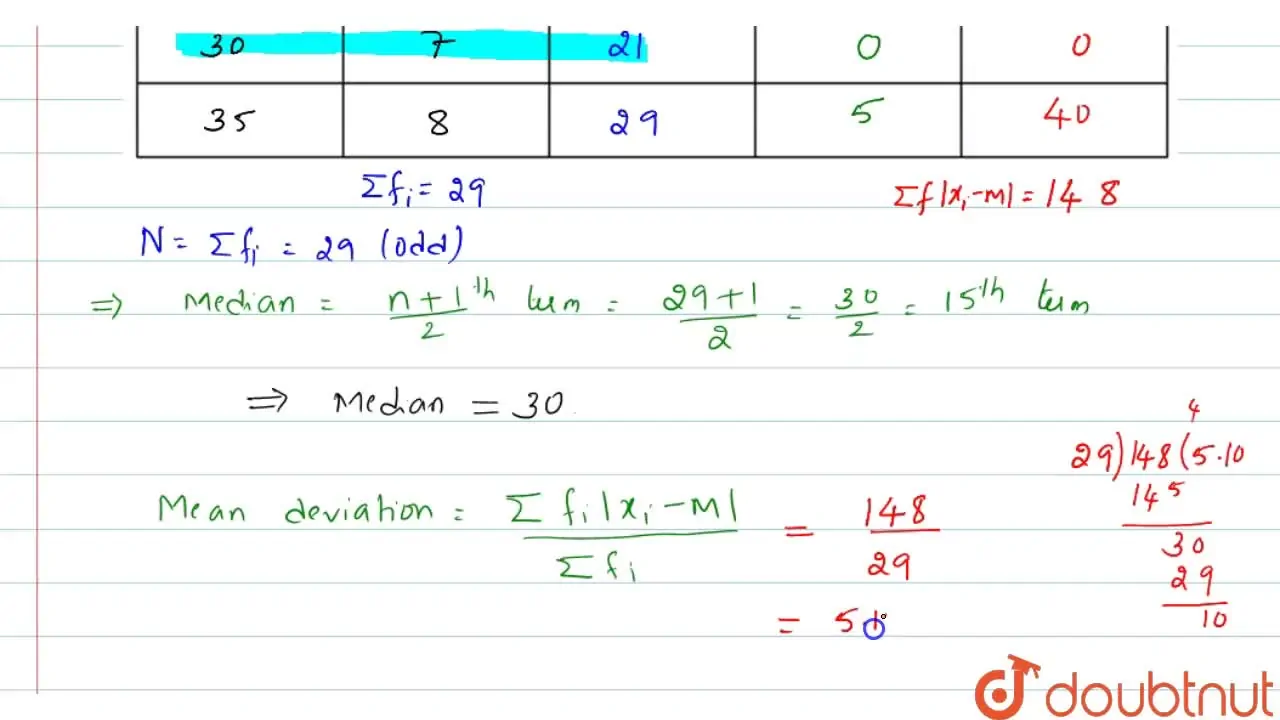 30 7 21 0 0
35 8 29 5 40
Σfi = 29 Σf|xi-M| = 148
N = Σfi = 29 (odd)
⇒ Median = n+1/2 th term = 29+1/2 = 30/2 = 15th term
⇒ Median = 30
4
29)148(5.10
145
30
29
10
Mean deviation = Σfi|xi-M|/Σfi = 148/29
= 5.1
doubtnut